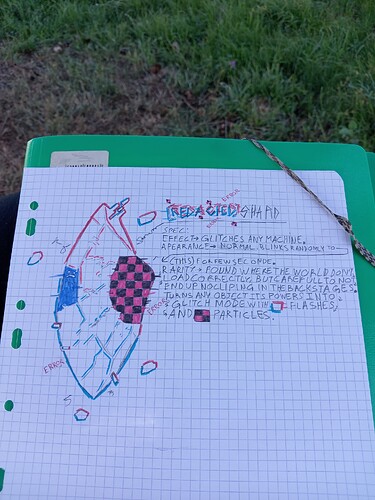 [REDACTED] SHARD
SPEC:
EFFECT→GLITCHES ANY MACHINE.
APEARANCE→NORMAL, BLINKS RANDOMLY TO
(THIS) FOR FEW SECONDS.
RARITY→FOUND WHERE THE WORLD DON'T
LOAD CORRECTLY, BUT CAREFULL TO NOT
END UP NOCLIPING IN THE BACKSTAGES.
TURNS ANY OBJECT ITS POWERS INTO
GLITCH MODE WITH FLASHES,
AND PARTICLES.
ERROR